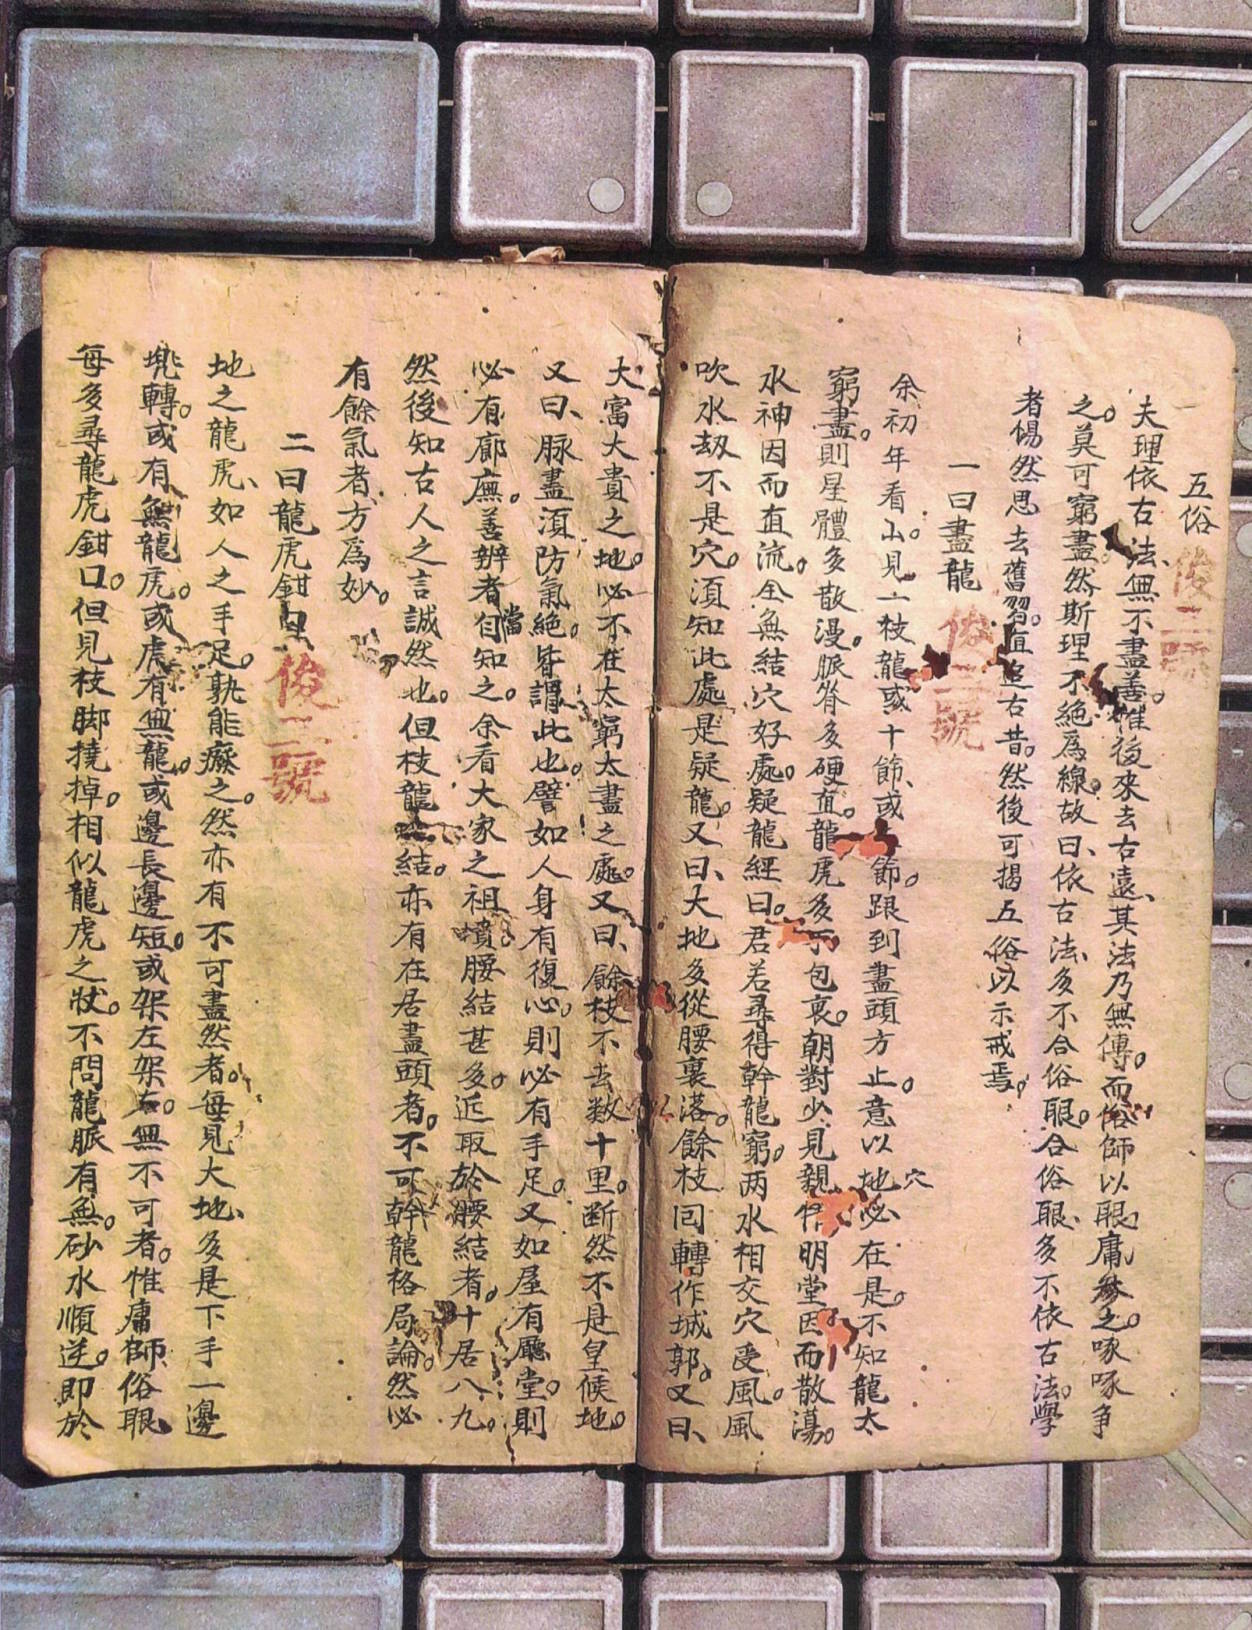 五俗
俊二號
夫理依古法、無不盡善。惟後來去古遠、其法乃無傳。而俗師以眼庸參之。啄啄争
之。莫可窮盡。然斯理不絕爲線。故曰、依古法、多不合俗眼。合俗眼、多不依古法。學
者惕然思去舊習。直追古昔。然後可揭五俗以示戒焉。
一曰盡龍
俊二號
余初年看山。見一枝龍或十節、或節。跟到盡頭方止。意以地穴必在是。不知龍太
窮盡。則星體多散漫。脈脊多硬直。龍虎多不包裹。朝對少見親伴明堂因而散蕩。
水神因而直流。全無結穴好處。疑龍經曰。君若尋得幹龍窮。两水相交穴受風。風
吹水刼不是穴。須知此處是疑龍。又曰、大地多從腰裏落。餘枝囘轉作城郭。又曰、
大富大貴之地。必不在太窮太盡之處。又曰、餘枝不去数十里。断然不是皇候地。
又曰、脉盡須防氣絕。皆謂此也。譬如人身有復心。則必有手足。又如屋有廳堂。則
必有廊廡。善辦者自當知之。余看大家之祖墳。腰結甚多。近取於腰結者。十居八九。
然後知古人之言誠然也。但枝龍結。亦有在居盡頭者。不可幹龍格局論。然必
有餘氣者、方爲妙。
二曰龍虎鉗口
俊二號
地之龍虎、如人之手足。孰能癈之。然亦有不可盡然者。每見大地、多是下手一邊
堍轉。或有無龍虎。或虎有無龍。或邊長邊短。或架左架右。無不可者。惟庸師俗眼
每多尋龍虎鉗口。但見枝脚撓掉。相似龍虎之狀。不問龍脈有無。砂水順逆。即於